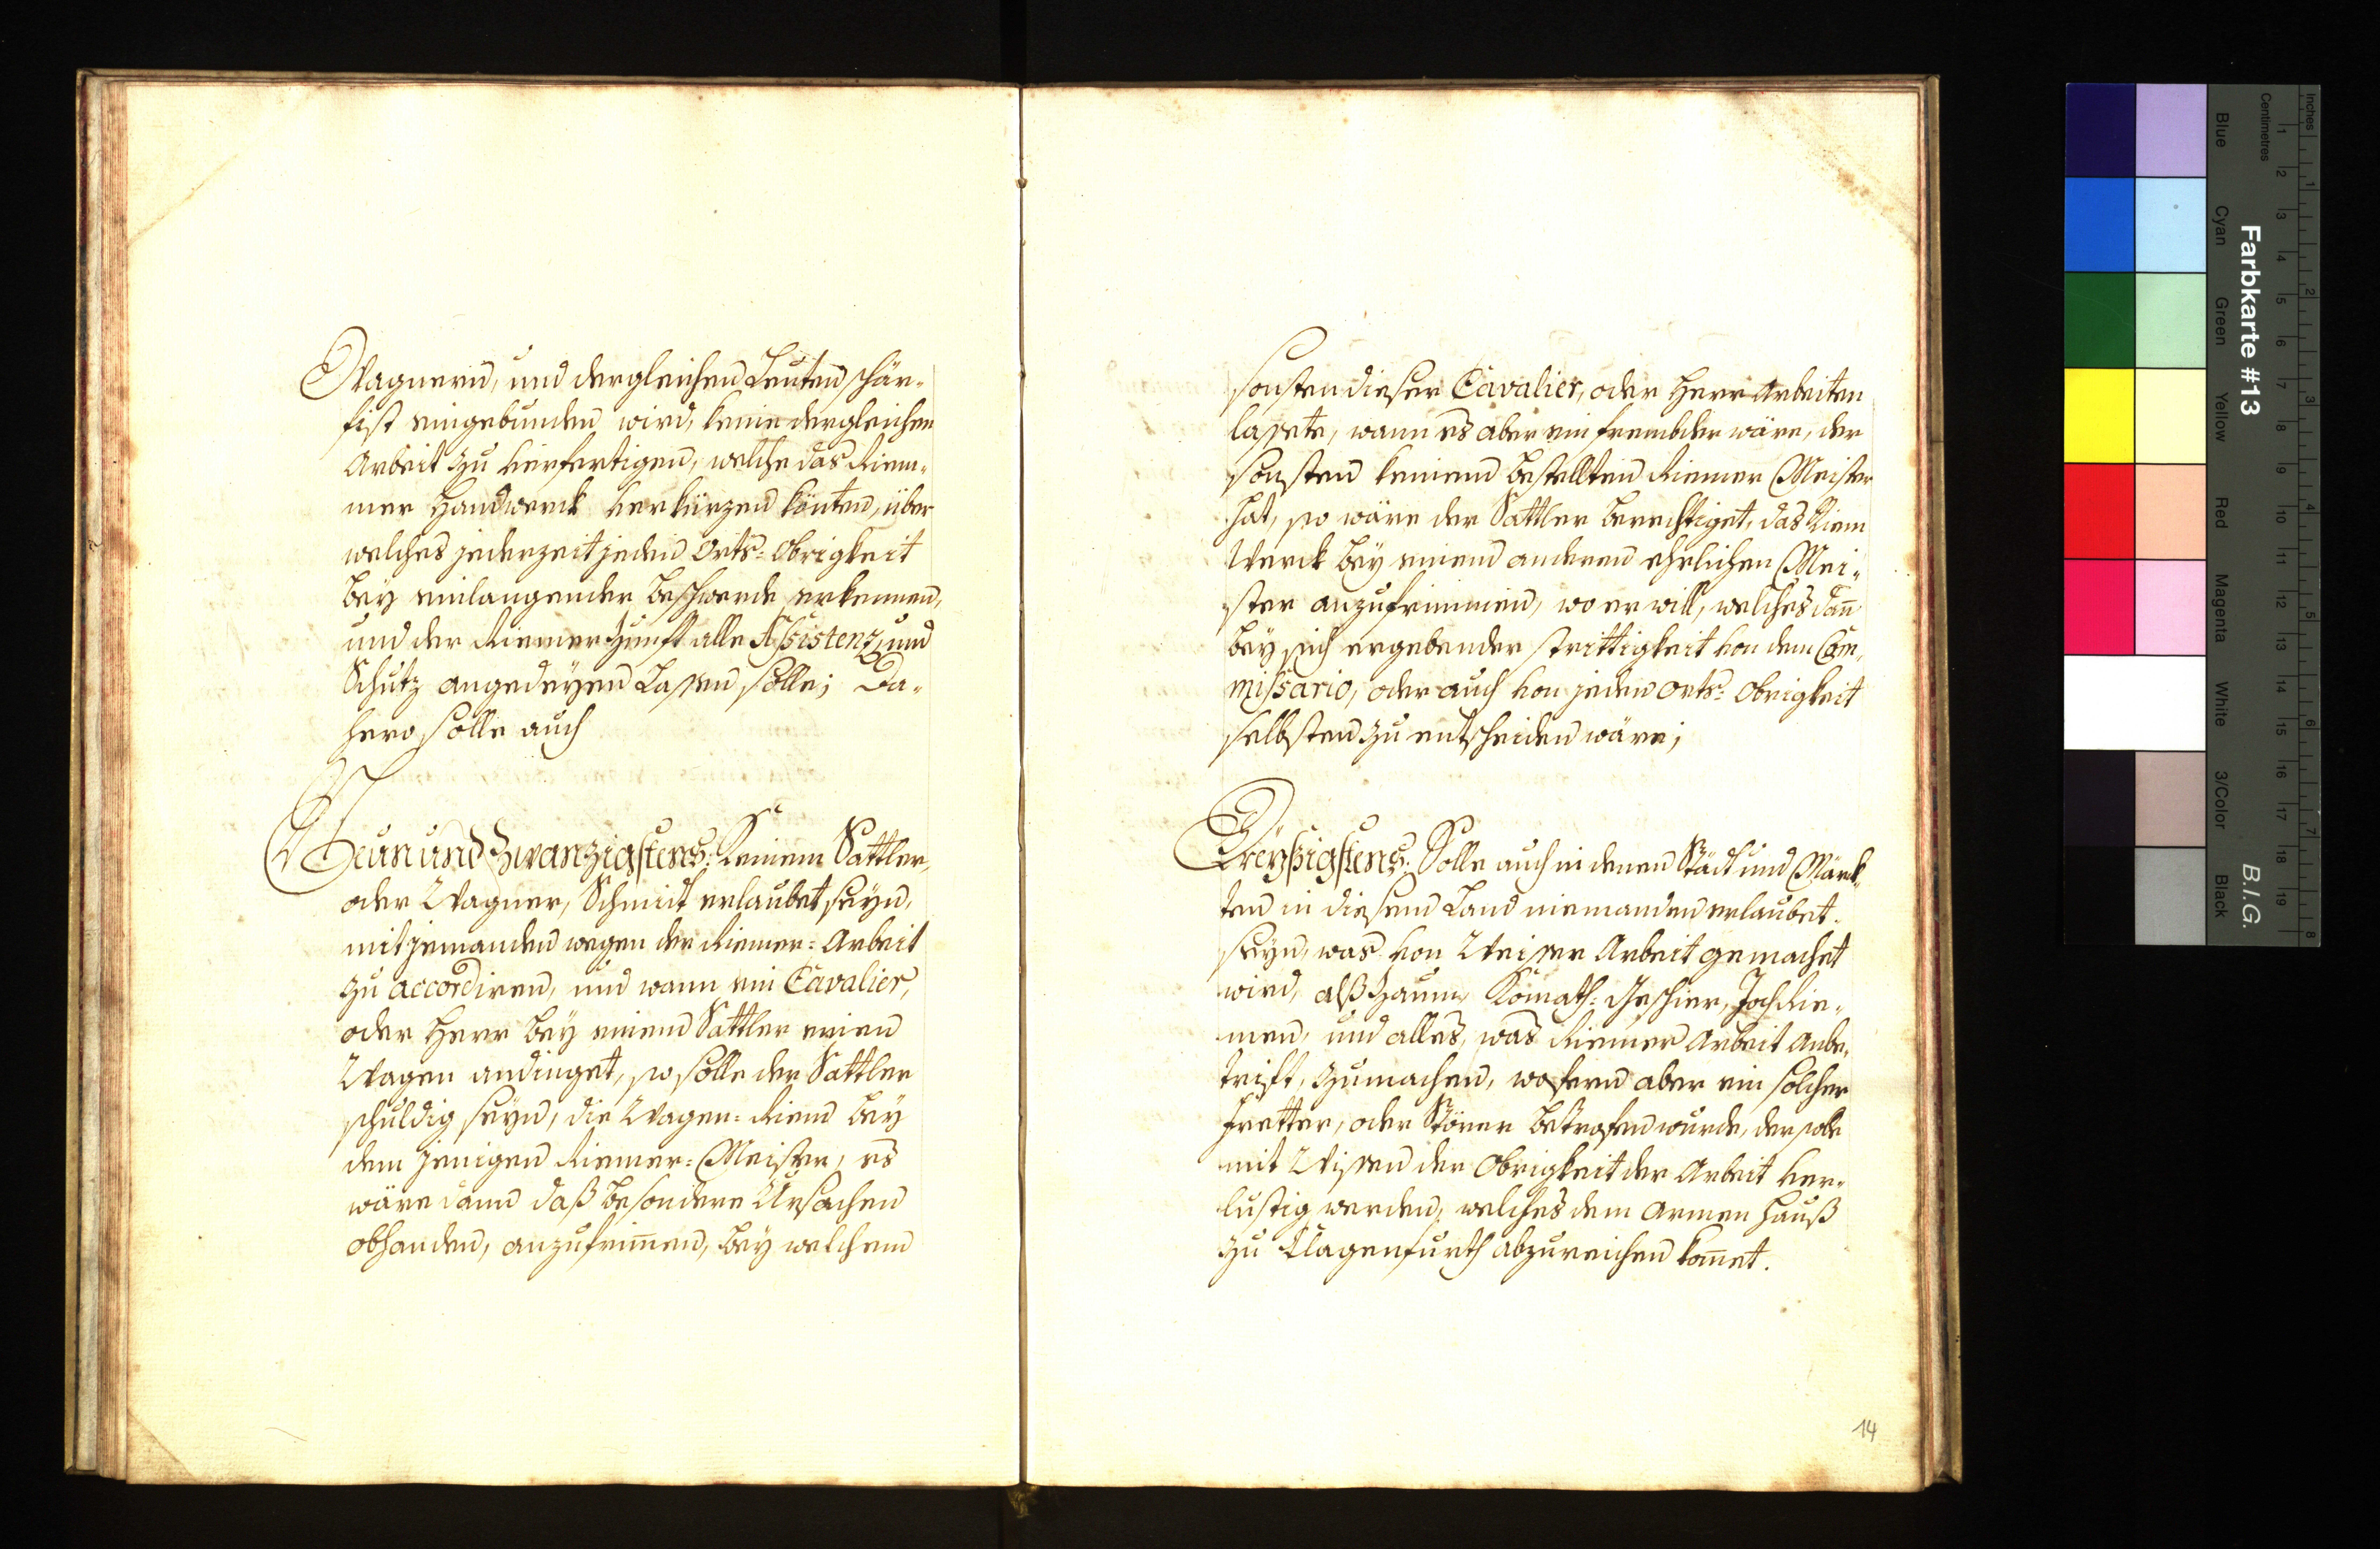 Wagnern, und dergleichen Leuten schär-
fist eingebunden wird, keine dergleichen
Arbeit zu verfertigen, welche das Riem-
mer Handwerck verkürzen könten, über
welches jederzeit jeden Orts-Obrigkeit
bey einlangender beschwerde erkennen,
und der Riemer Zunft alle Assistenz, und
Schutz angedeyen Lassen solle; Da-
hero solle auch
Neun und Zwanzigstens: Keinem Sattler,
oder Wagner, Schmidt erlaubet seyn,
mit jemanden wegen der Riemer-Arbeit
zu accordiren, und wann ein Cavalier,
oder Herr bey einem Sattler einen
Wagen andinget, so solle der Sattler
schuldig seyn, die Wagen-Riem bey
dem jenigen Riemer-Meister, es
wäre dann daß besondere Ursachen
obhanden, anzufrim̄en, bey welchem
sonsten dieser Cavalier, oder Herr Arbeiten
lassete, wann es aber ein frembder wäre, der
sonsten keinen bestellten Riemer Meister
hat, so wäre der Sattler berechtiget, das Riem
Werck bey einem anderen ehrlichen Mei-
ster anzufrimmen, wo er will, welches dan̄
bey sich ergebender strittigkeit von dem Com-
missario, oder auch von jeden orts-Obrigkeit
selbsten zu entscheiden wäre;
Dreyßigstens: Solle auch in denen Städt und Märck-
ten in diesem Land niemanden erlaubet
seyn, was von Weisser Arbeit gemachet
wird, alß Zaum, Komath-Geschier, Joch Rie-
men, und alles, was Riemer Arbeit Anbe-
trift, zumachen, wofern aber ein solcher
Fretter, oder Störer betrofen wurde, der solle
mit Wissen der Obrigkeit der Arbeit ver-
lustig werden, welches dem Armen Hauß
zu Clagenfurth abzureichen kom̄et.
14
Farbkarte #13
B.I.G.
Inches
Centimetres
1 2 3 4 5 6 7 8 9 10 11 12 13 14 15 16 17 18 19
1 2 3 4 5 6 7 8
Blue
Cyan
Green
Yellow
Red
Magenta
White
3/Color
Black